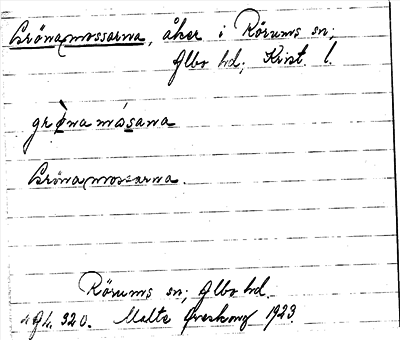 Grönamossarna, åker i Rörums sn;
Albo hd; Krist. l.
grò̱na másana
Grönamossarna.
Rörums sn; Albo hd.
320. Malte 1923